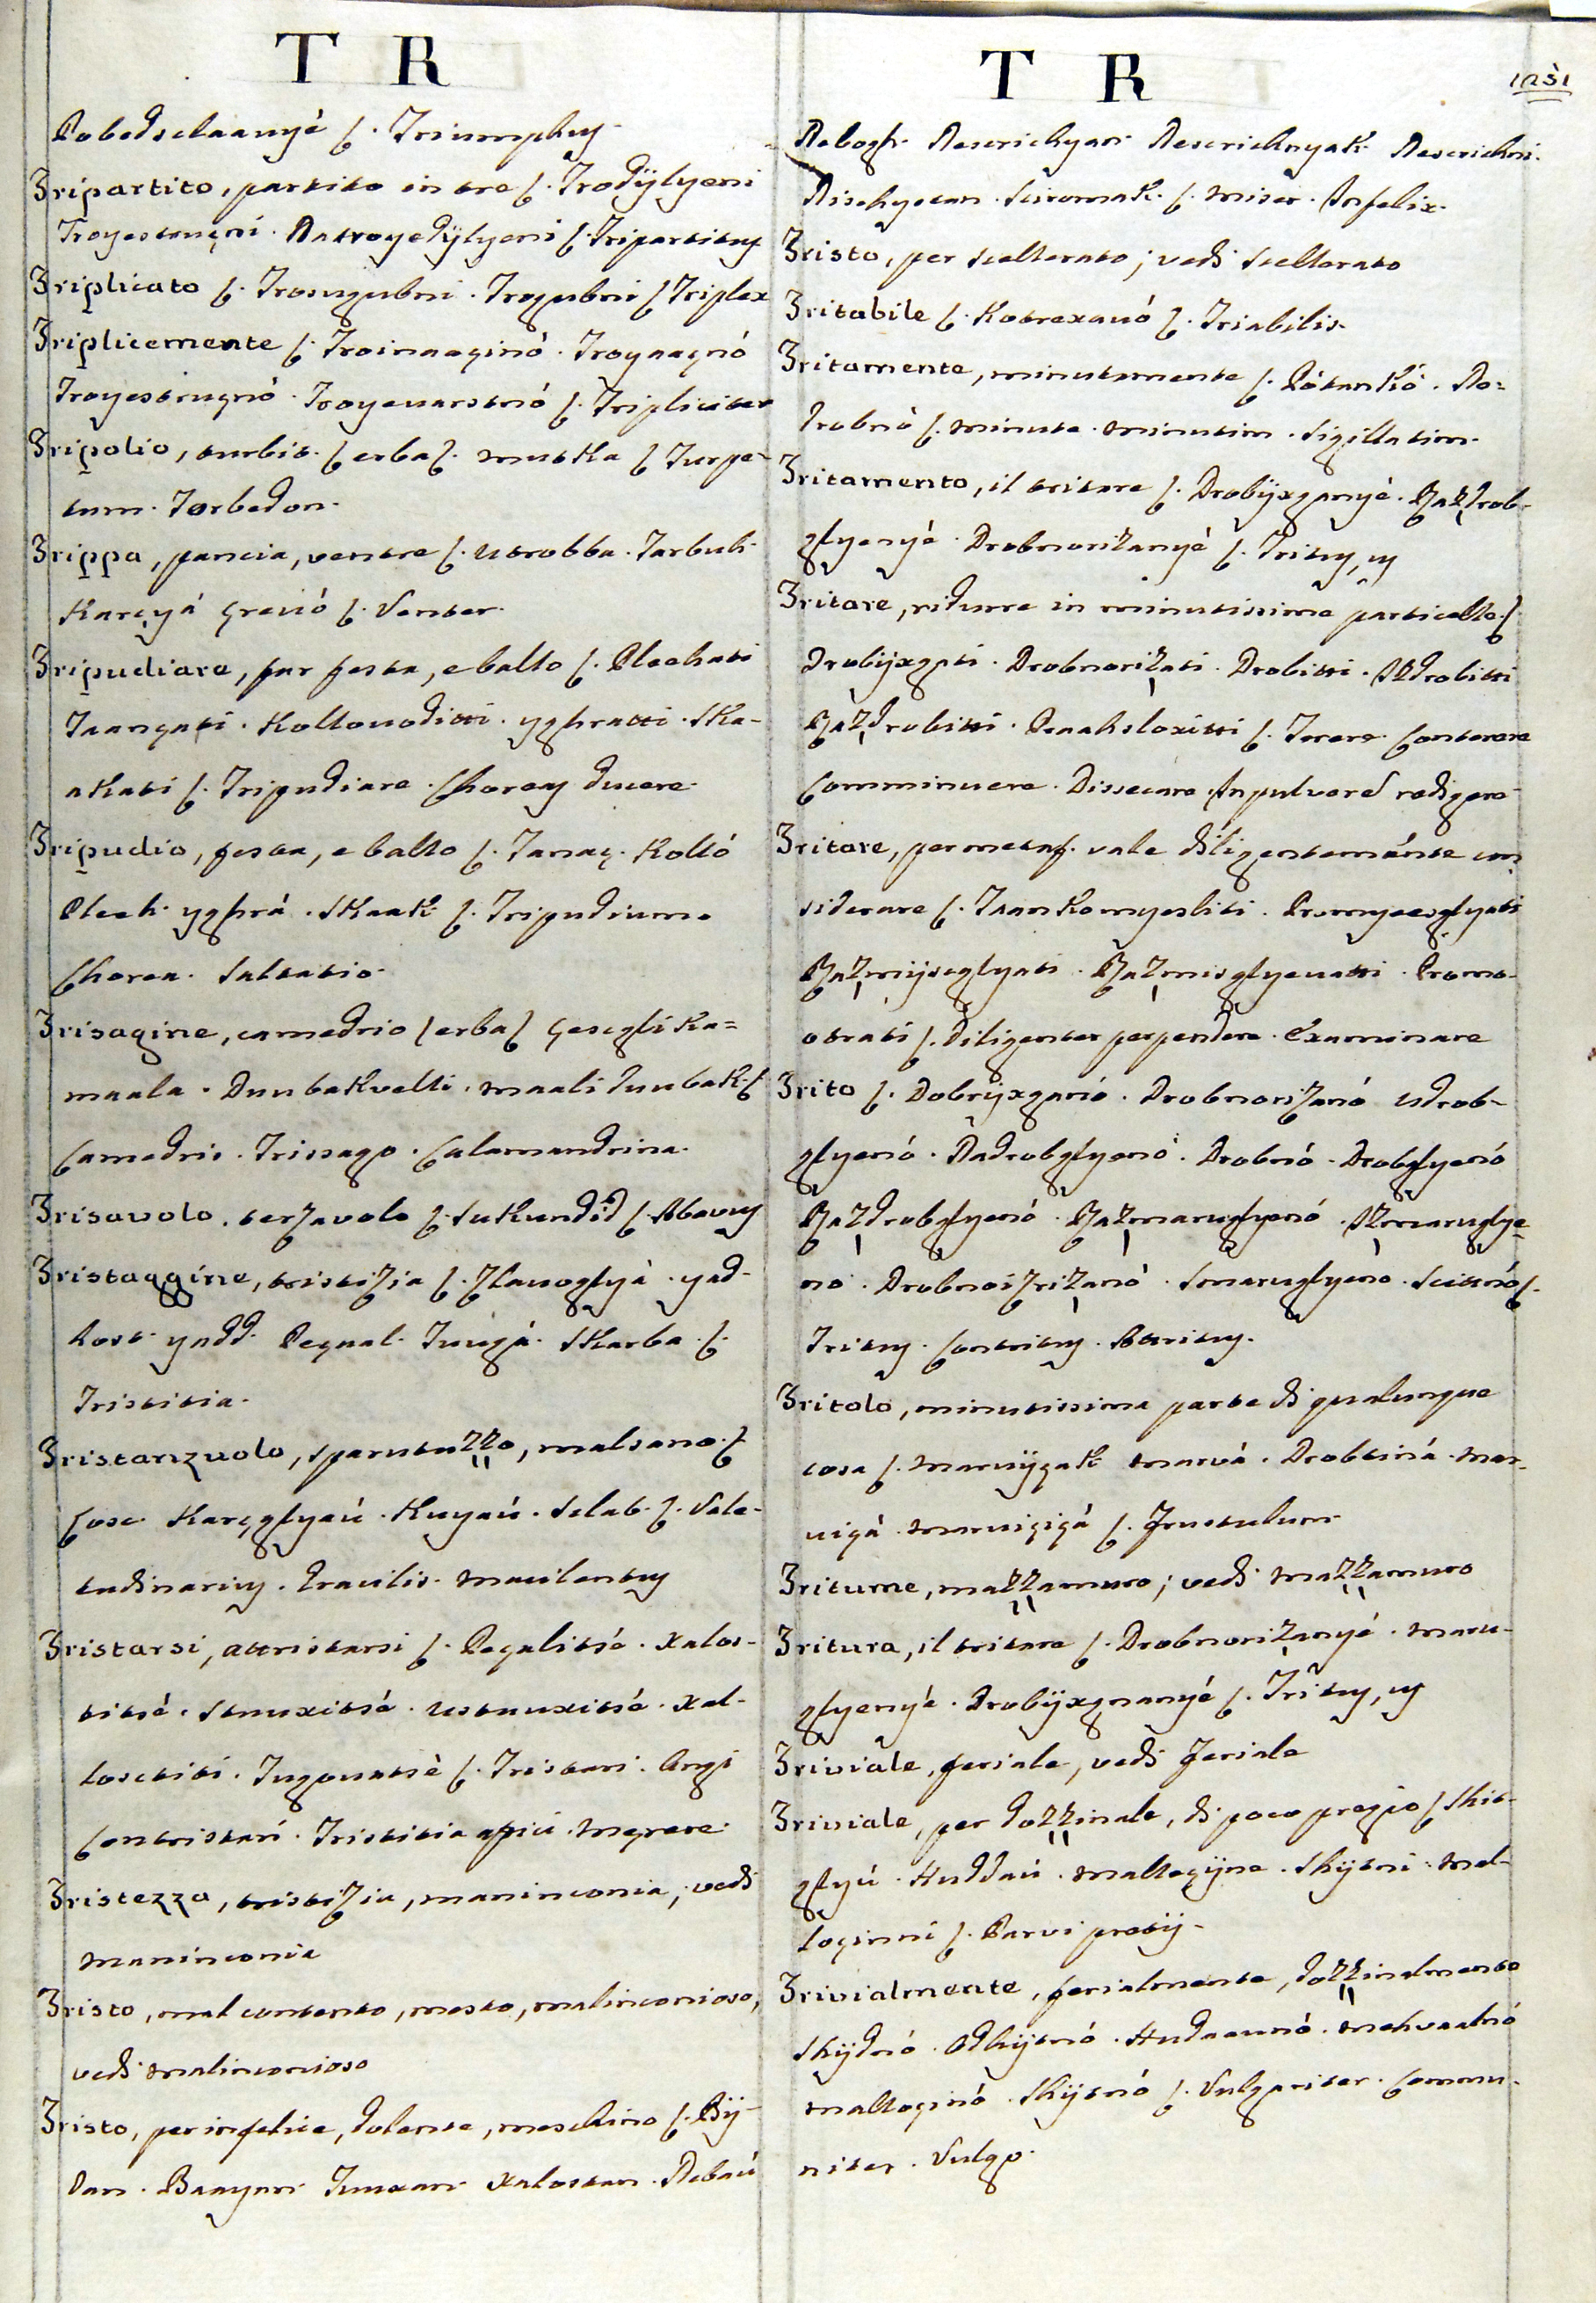 T R
Pobedselaanyé ſ. Triumphus
Tripartito, partito in tre ſ. Trodÿlyeni
Troyestruçni. Natroyedÿlyeni ſ. Tripartitus
Triplicato ſ. Trosugubni. Trogubni ſ Triplex
Triplicemente ſ. Troinaaçinó. Troynaçnó
Troyestruçnó. Troyevarstnó ſ. Tripliciter
Tripolio, turbit. ſ erba ſ. mutka ſ Turpe-
tum. Torbedon.
Trippa, pancia, ventre ſ. Utrobba. Tarbuh.
Karçyá Çrevó ſ. Venter.
Tripudiare, far festa, e ballo ſ. Pleehati
Taançati. Kollovoditti. yghratti. Ska-
akati ſ. Tripudiare. Choreas ducere.
Tripudio, festa, e ballo ſ. Tanaç. Kolló
Pleeh. yghrá. Skaak ſ. Tripudium.
Chorea. Saltatio.
Trisagine, camedrio ſ erba ſ Çescgli Ka=
maala. Duubakvelli. maali duubak. ſ
Camedris. Trissago. Calamandrina.
Trisavolo, terzavolo ſ. Sukundid ſ. Abavus
Tristaggine, tristizia ſ. Zlavoglyá. yad-
host. yadd. Peçual. Tuugá. Skarba. ſ.
Tristitia.
Tristanzuolo, sparutuzzo, malsano. ſ
Cosc. Karçglyaú. Kuyaú. Selab. ſ. Vale-
tudinarius. Gracilis. Macilentus
Tristarsi, attristarsi ſ. Peçalitsé. Xalos-
titsé. Stuuxitsé. Ustuuxitsé. Xal-
loscititi. Tugovatsè ſ. Tristari. Angi
Contristari. Tristitia affici. Mœrere.
Tristezza, tristizia, maninconia; vedi
Maninconia
Tristo, mal contento, mesto, malinconioso,
vedi Malinconioso
Tristo, per infelice, dolente, meschino ſ. Bÿ-
dan. Baayan. Tuuxan. Xalostan. Nebaú
T R 1251
Nebogh. Nescrichyan. Nescrichnyak. Nescrichni.
Nischyetan. Sciromak. ſ. Miser. Infelix.
Tristo, per scellerato; vedi Scellerato
Tritabile ſ. Kotrexavó ſ. Triabilis.
Tritamente, minutamente ſ. Pótankó. Po=
drobnó ſ. Minute. Minutim. Sigillatim.
Tritamento, il tritare ſ. Drobÿxganyé. Razdrob-
glyenyé. Drobnorizanyé ſ. Tritus, us
Tritare, ridurre in minutissime particelle. ſ.
Drobÿxgati. Drobnorizati. Drobitti. Izdrobitti
Razdrobitti. Praahsloxitti ſ. Terere. Conterere
Comminuere. Dissecare. In pulvere redigere
Tritare, per metaf. vale diligentemente con
siderare ſ. Taankomysliti. Promyeesglyati
Razmÿsglyati. Razmisglyevatti. Promo-
otrati ſ. Diligenter perpendere. Examinare
Trito ſ. Dobrÿxganó. Drobnorizanó Udrob-
glyenó. Nadrobglyenó. Drobnó. Drobglyenó
Razdrobglyenó. Razmaruglyenó. Izmaruglye-
nó. Drobnoizrizanó. Smaruglyenó. Scittnó ſ.
Tritus. Contritus. Attritus.
Tritolo, minutissima parte di qualunque
cosa ſ. Marvÿçak marvá. Drobtiná. Mar-
viçá. Marviçiçá ſ. Frustulum
Tritume, mazzamuro; vedi Mazzamuro
Tritura, il tritare ſ. Drobnorizanyé. Maru-
glyenyé. Drobÿxgnanyé ſ. Tritus, us
Triviale, feriale, vedi Feriale
Triviale, per dozzinale, di poco pregio ſ Shit-
glyú. Huddaú. Malloçÿne. Shÿtni. Mal-
loçinni ſ. Parvi pretÿ
Trivialmente, ferialmente, dozzinalmente
Shÿdnó. Odhÿtnó. Hudaavnó. Mehvaalnó
Malloçinó. Shÿtnó ſ. Vulgariter. Commu-
niter. Vulgo.